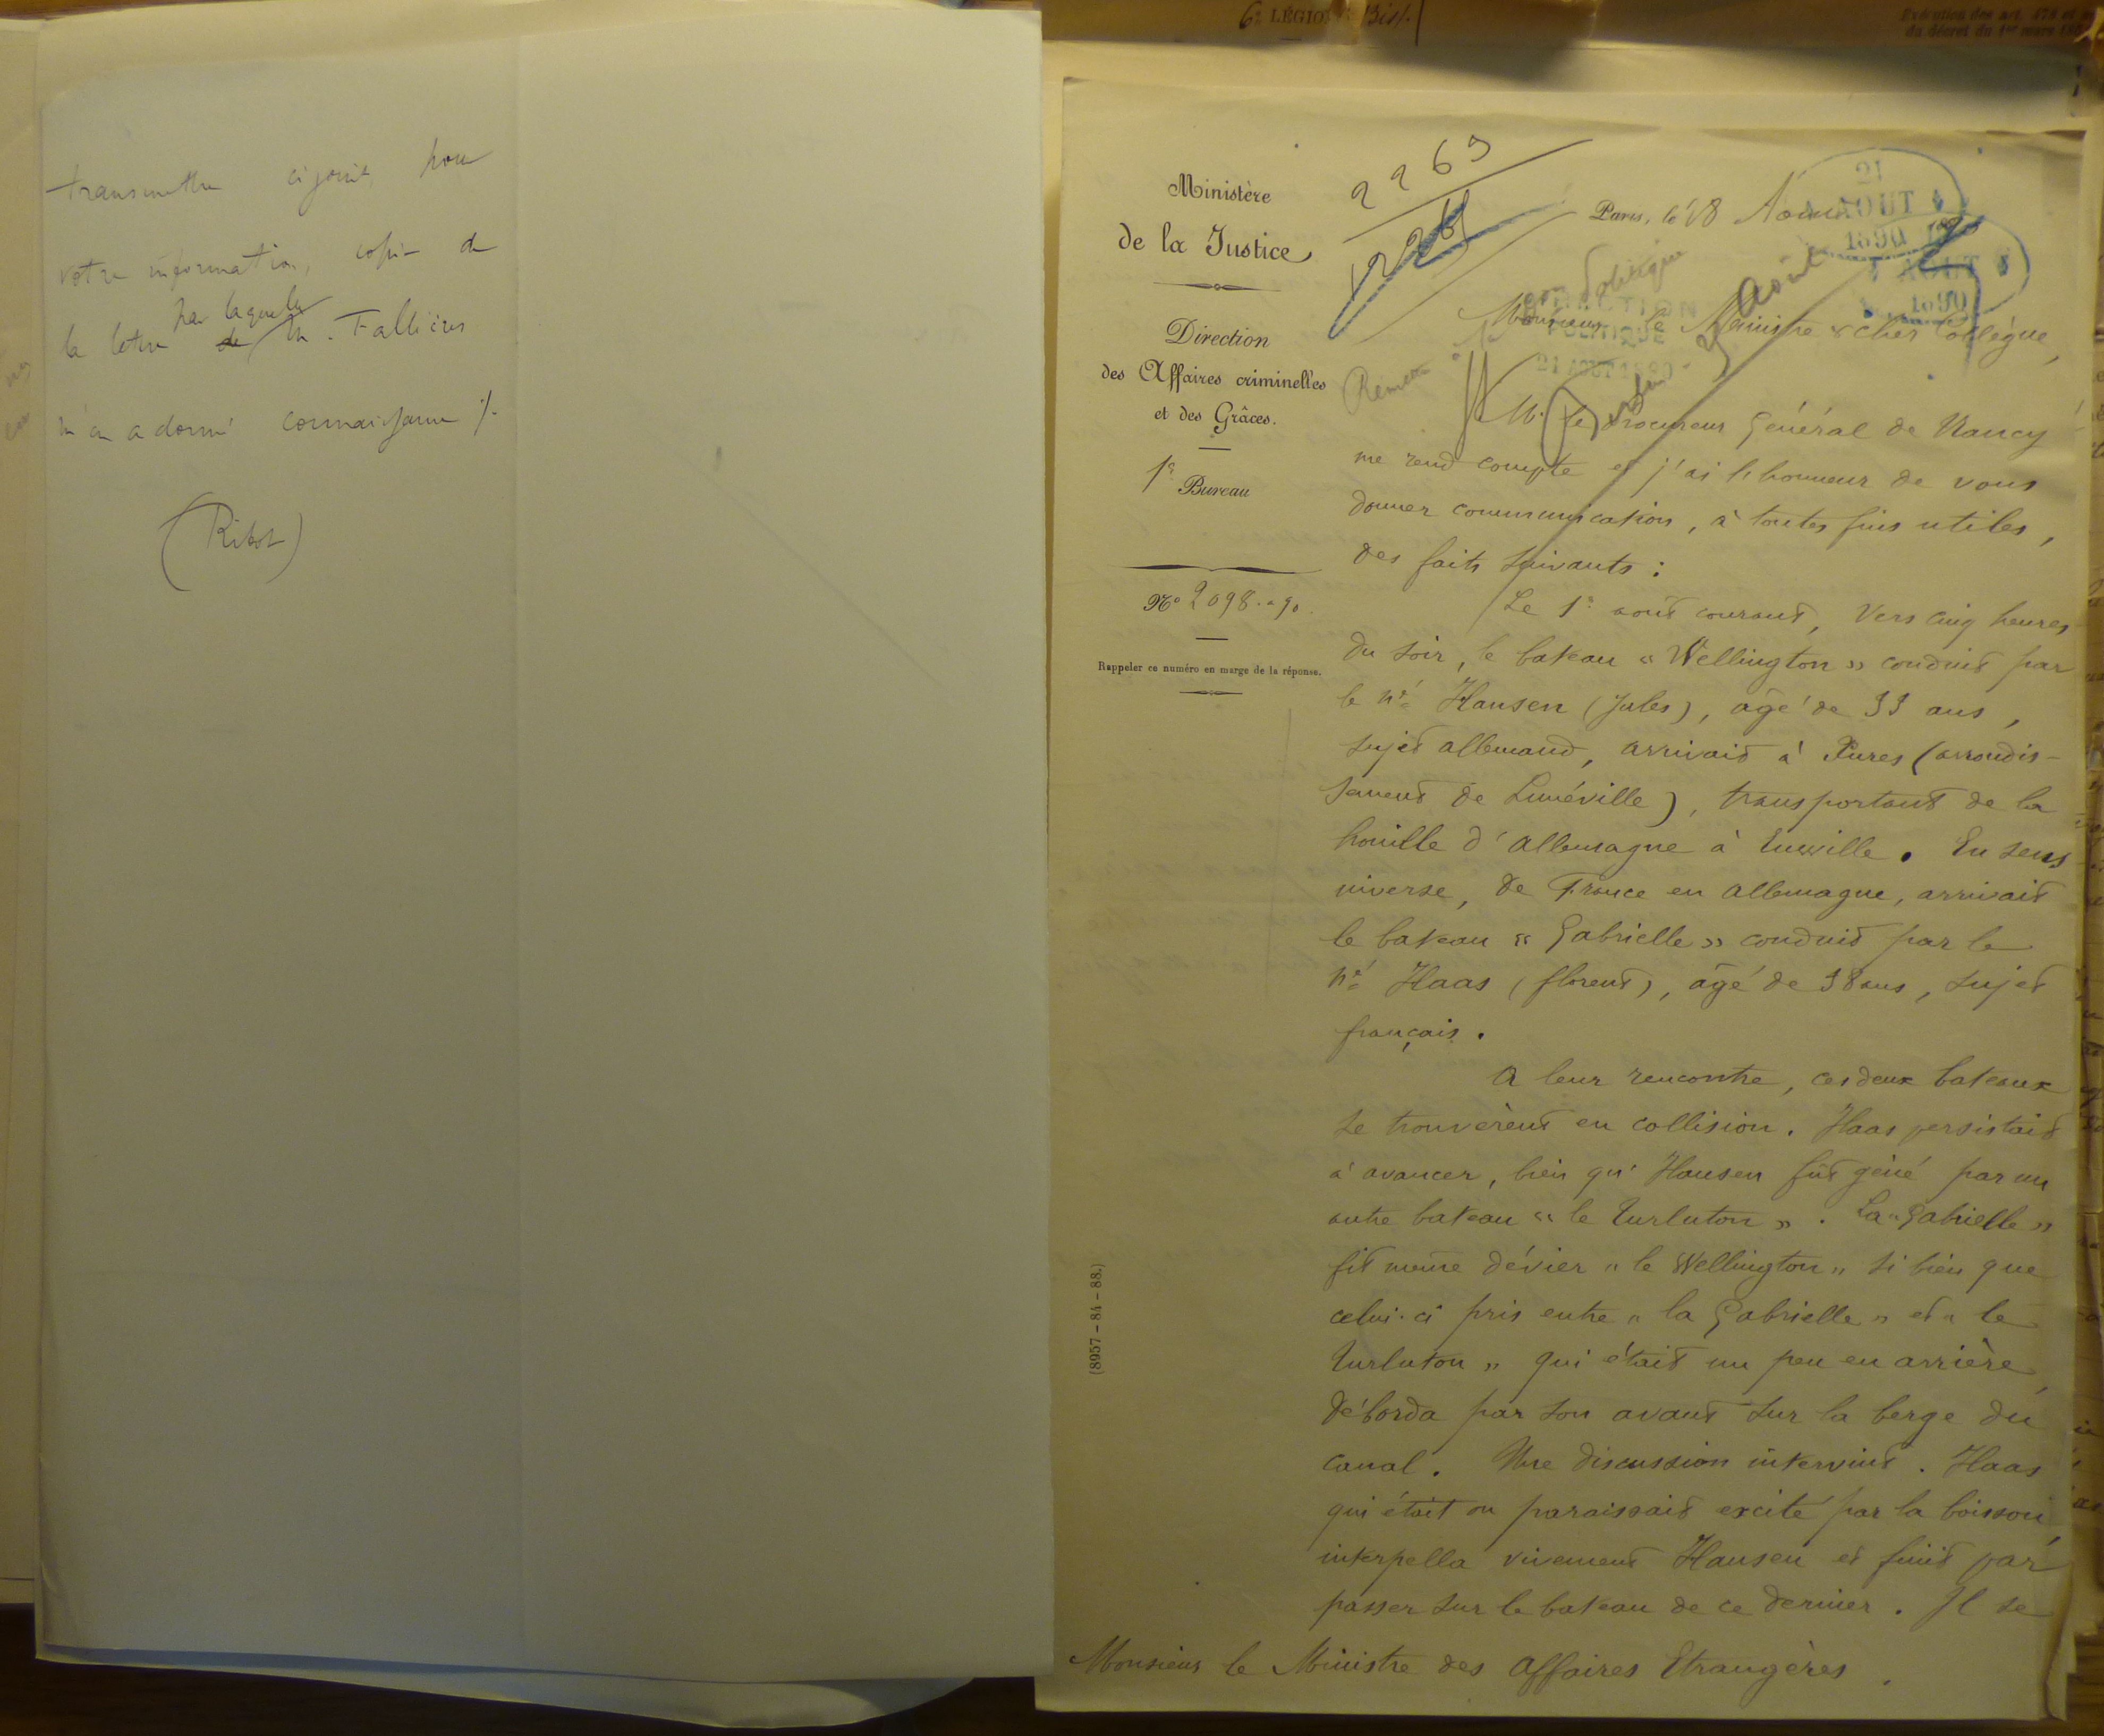 transmettre ci joint, pour
votre information, copie de
la lettre de par laquelle M. Fallières
m'en a donné connaissance ./.
(Ribot)
6e LÉGION Bis/.
Exécution des art. 
du décret du 1er mars
Ministère
de la Justice
Direction
des Affaires criminelles
et des Grâces.
1er Bureau
No 2098. a 90.
Rappeler ce numéro en marge de la réponse.
(8957-84-88.)
2269
Paris, le 18 Août
21
AOUT
1890
AOUT
1890
DIRECTION
POLITIQUE
21 AOUT 1890
Politique
Août
Monsieur le Ministre & cher Collègue,
M. le Procureur Général de Nancy
me rend compte et j'ai l'honneur de vous
donner communication, à toutes fins utiles,
des faits suivants :
Le 1er août courant, vers cinq heures
du soir, le bateau « Wellington » conduit par
le né Hansen (Jules), âgé de 33 ans,
sujet allemand, arrivait à Xures (arrondis-
sement de Lunéville), transportant de la
houille d'Allemagne à Einville. En sens
inverse, de France en Allemagne, arrivait
le bateau « Gabrielle » conduit par le
né Haas (florent), âgé de 38 ans, sujet
français.
A leur rencontre, ces deux bateaux
se trouvèrent en collision. Haas persistait
à avancer, bien qu'Hansen fût gêné par un
autre bateau « le Turluton ». La « Gabrielle »
fit même dévier « le Wellington » si bien que
celui-ci pris entre « la Gabrielle » et « le
Turluton » qui était un peu en arrière,
déborda par son avant sur la berge du
canal. Une discussion intervint. Haas
qui était ou paraissait excité par la boisson,
interpella vivement Hansen et finit par
passer sur le bateau de ce dernier. Il se
Monsieur le Ministre des Affaires Etrangères.